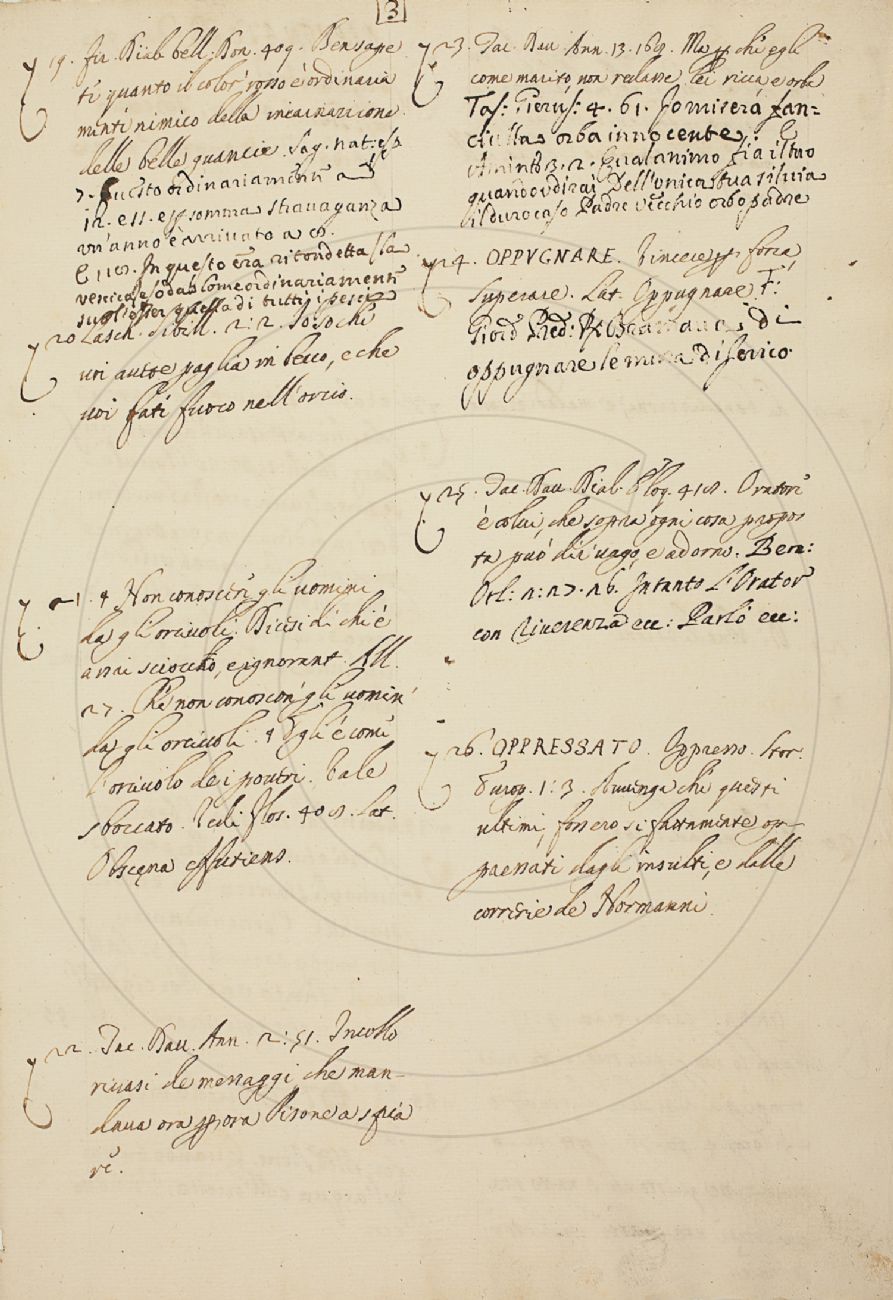 3
19. Fir. Dial. bell. Don. 409. Ben sape
te quanto il color rosso è ordinaria
mente nimico della incarnazione
delle belle guancie. Sag. nat. esp.
7. Questo ordinariamente a
12. e 11. e per somma stravaganza
un anno è arrivato a 8.
E 118. In questo era ritondetta la
vescica, e soda, come ordinariamente
suol esser quella di tutti i pesci
20 Lasch. Sibill. 2: 2. Io so che
voi avete paglia in becco, e che
voi fate fuoco nell'orcio.
21. ¶ Non conoscere gli uomini
da gli orciuoli. Dicesi di chi è
assai sciocco, e ignorante. All.
27. Che non conoscon' gli uomin'
da gli orciuoli. ¶ Egli è come
l'orciuolo de i poveri. Vale
sboccato. Flos. 408. Lat.
Obscęna effutiens.
22. Tac. Dau. Ann. 2: 51. Incollo
rivasi de messaggi che man-
dava ora per ora Pisone a spia
re.
23. Tac. Dau. Ann. 13. 169. Ma perchè egli
come marito non relasse lei ricca e orba
Tas: Gierus: 4. 61. Io misera fan=
ciulla orba innocente. E
Amint. 3. 2. Qual animo fia il tuo
quando udirai dell'unica tua Silvia
il duro caso Padre vecchio orbo padre
24. OPPVGNARE. Vincere per forza
Superare. Lat. Oppugnare F:
Giord: Pred: R. Bramava di
oppugnare le mura di Jerico.
25. Tac. Dau. Dial. Eloq. 418. Oratore
è colui, che sopra ogni cosa propos
ta può dir vago, e adorno. Bern:
Orl: 2: 27. 26. Intanto l'Orator
con riverenza ecc: Parlò ecc:
26. OPPRESSATO. Oppresso. Stor.
Europ. 1: 3. Avvenga che questi
ultimi, fossero sì fattamente op-
pressati dagli insulti, e dalle
correrie de Normanni.